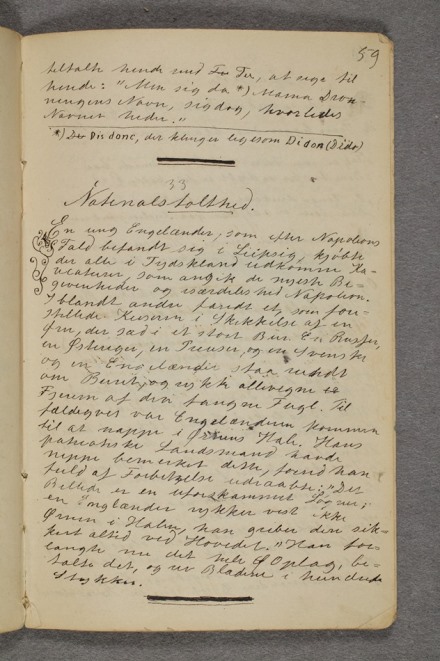 59
tiltalte hende med For Fru, at sige til
hende: "Men sig da *) Mama Dron-
ningens Navn, sig dog, hvorledes
Navnet heder."
*) Dis donc, der klinger ligesom Didon (Dido)
33
Nationalstolthed.
En ung Engelænder, som efter Napoleons
Fald befandt sig i Leipzig, kjøbte
der alle i Tydskland udkomne Ka-
ricaturer, som angik de nyeste Be-
givenheder og isærdeleshed Napoleon.
Iblandt andre fandt et, som fore-
stillede Keiseren i Skikkelse af en
Ørn, der sad i et stort Bur. En Russer,
en Østeriger, en Preuser, og en Svensker
og en Engelænder staa rundt
om Buret, og rykke allevegne
Fjerne af den fangne Fugl. Til-
fældigvis var Engelænderen kommen
til at nappe i Ørnens Hale. Hans
patriotiske Landsmand havde
neppe bemærket dette, førend han
fuld af Forbittrelse udraabte: "Det
Billede er en uforskammet Løgner;
en Englænder rykker vist ikke
Ørnen i Halen, han griber den sik-
kert altid ved Hovedet." Han for-
langte nu det hele Oplag, be-
talte det, og rev Bladene i hundrede
Stykker.